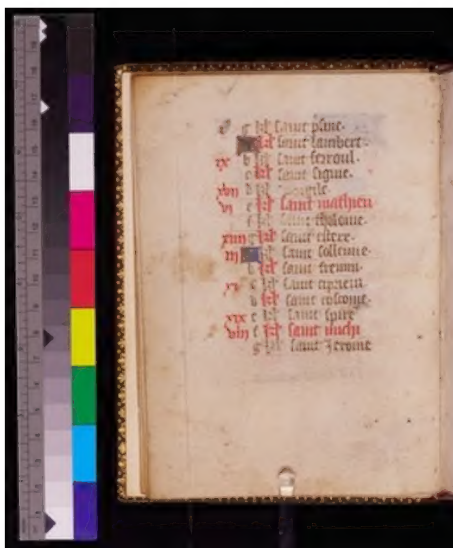 g kl' saint
kl' saint lambert.
ix b kl' saint ferroul.
c kl' saint signe.
xvii d kl' vigile.
vi e kl' saint mathieu
f kl' saint tholome.
xiiii g kl' saint
iii kl' saint sollenne.
b kl' saint fremin.
xi c kl' saint ciprien
d kl' saint cosome.
xix e kl' saint spire
viii f kl' saint michi
g kl' saint Jerome